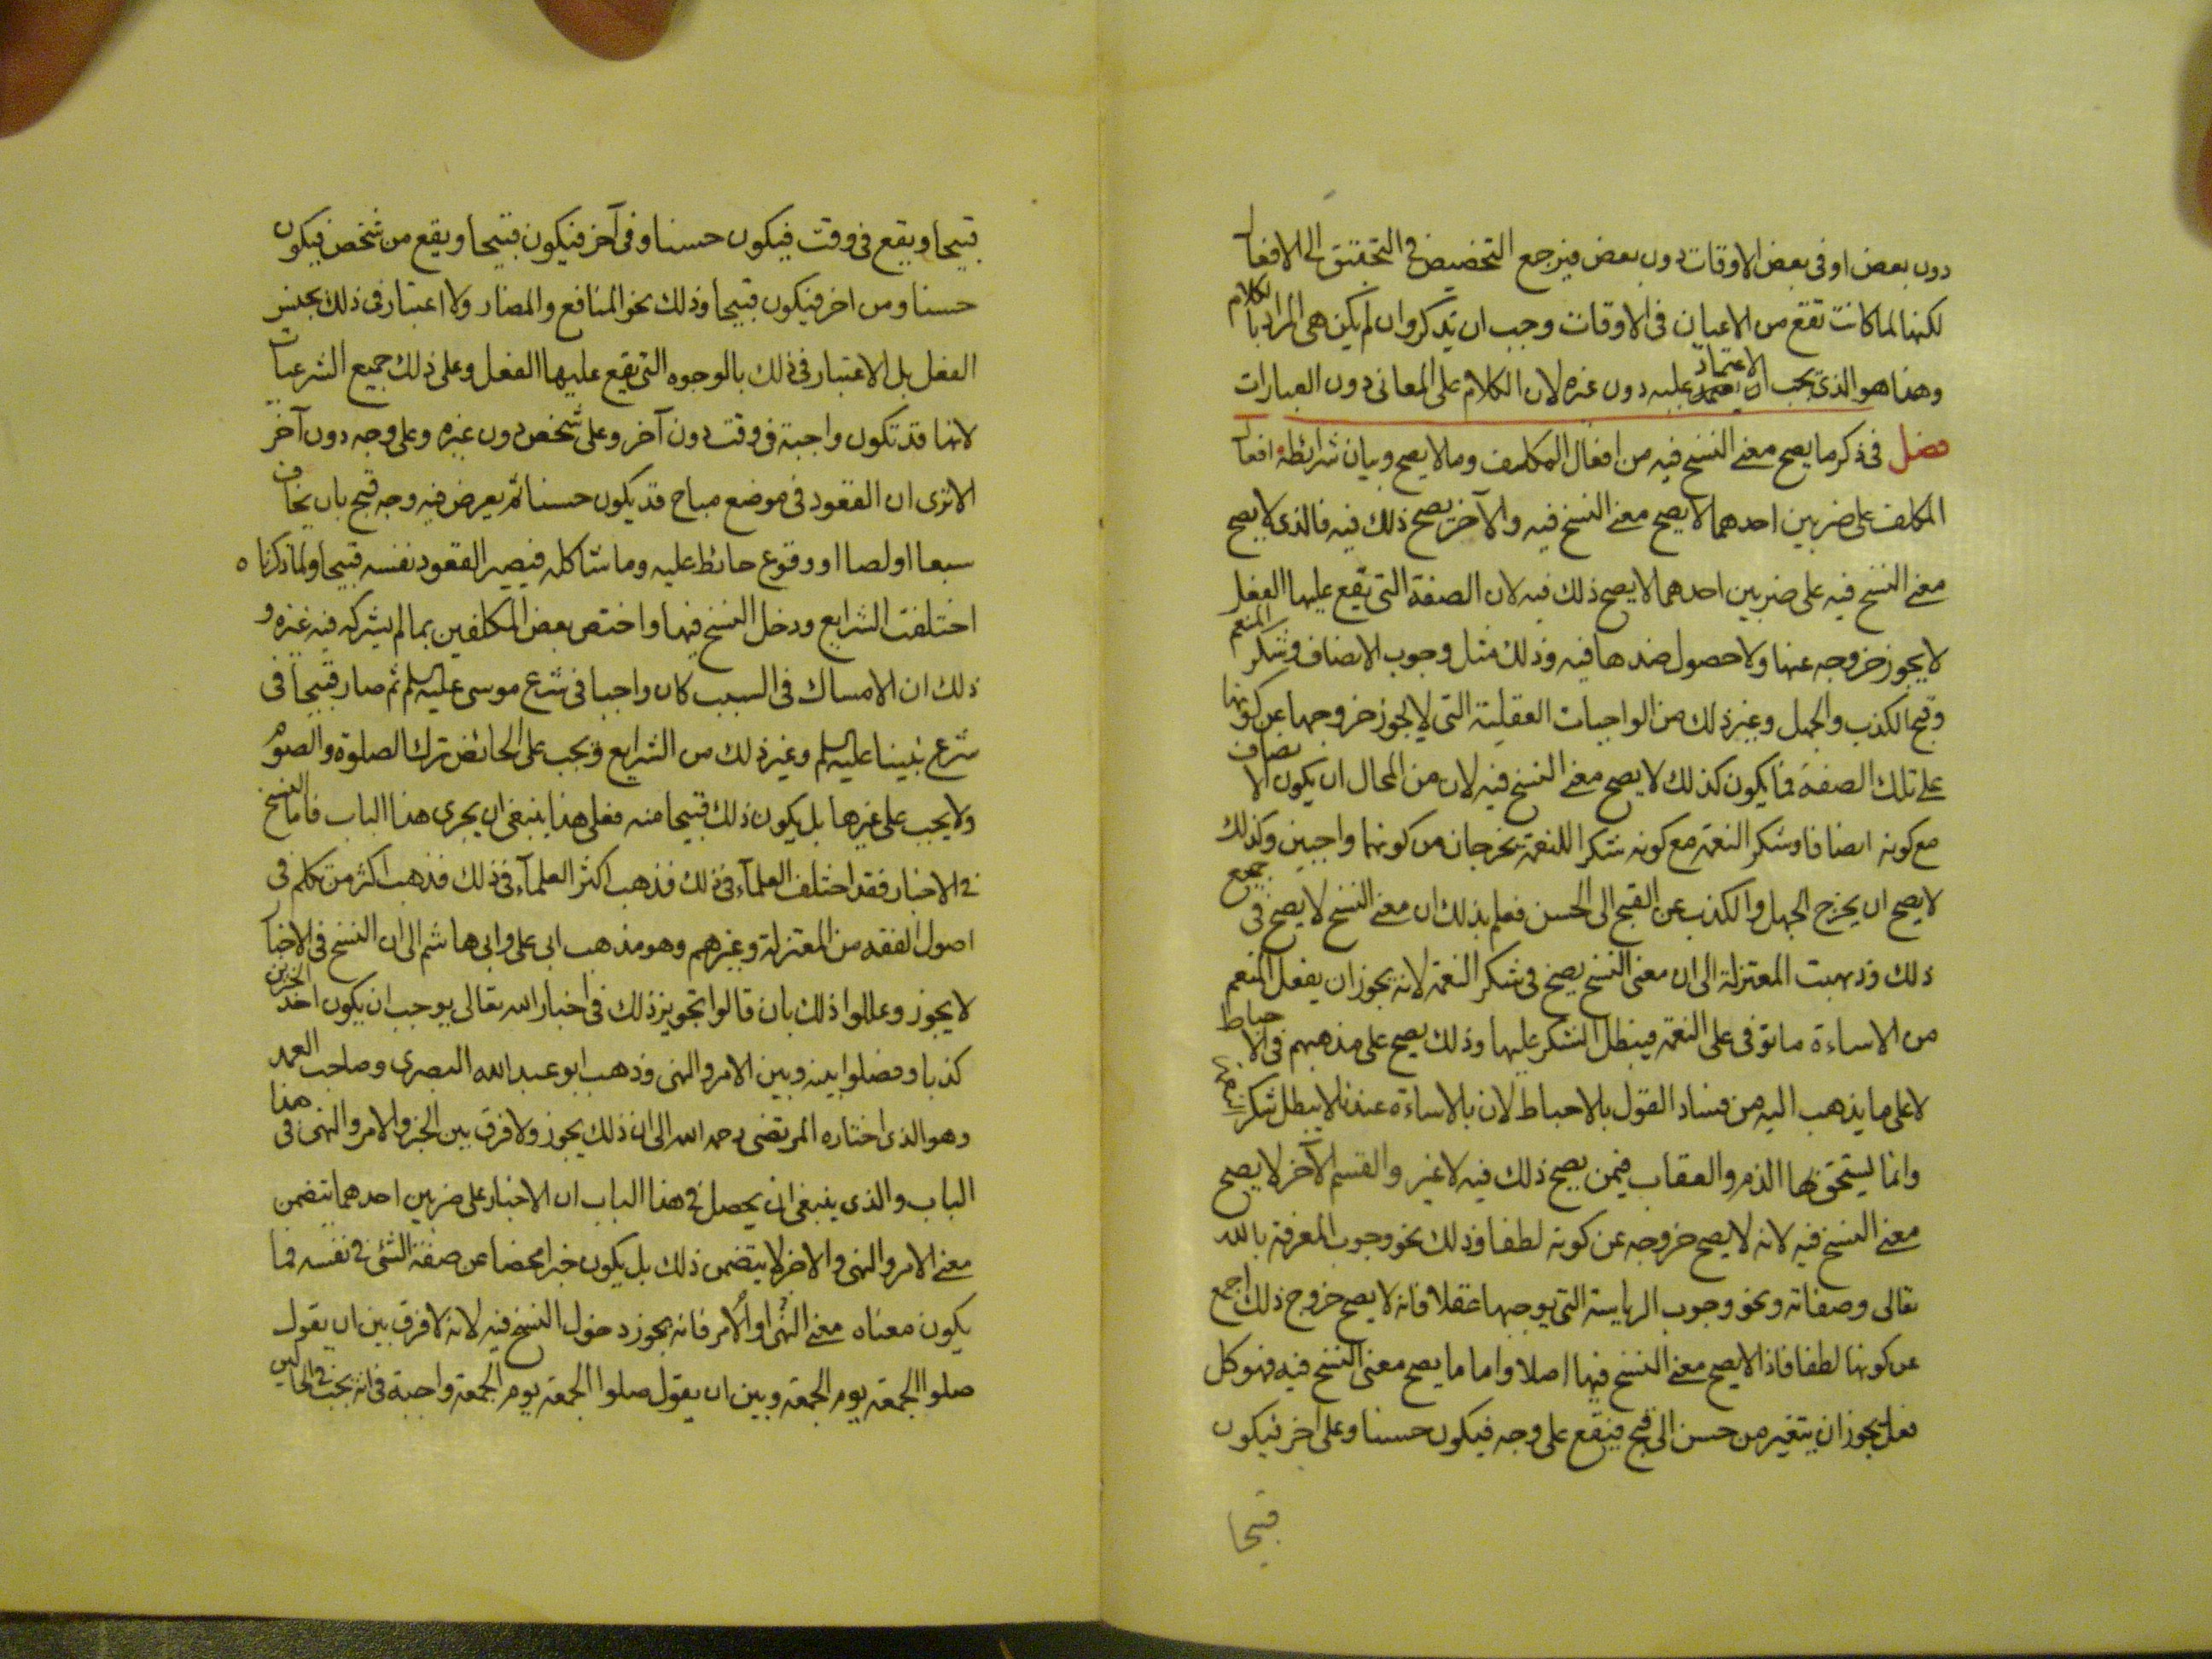 دون بعض او فى بعض الاوقات دون بعض فيرجع التخصيص فى التحقيق الى الافعال
لكنها لما كانت تقع من الاعيان فى الاوقات وجب ان تذكر وان لم يكن هى المراد بالكلام
وهذا هو الذى يجب الاعتماد عليه دون غيره لان الكلام على المعانى دون العبارات
فصل فى ذكر ما يصح معنى النسخ فيه من افعال المكلف وما لا يصح وبيان شرائطه افعال
المكلف على ضربين احدهما لا يصح معنى النسخ فيه والآخر يصح ذلك فيه فالذى لا يصح
معنى النسخ فيه على ضربين احدهما لا يصح ذلك فيه لان الصفة التى يقع عليها الفعل
لا يجوز خروجه عنها ولا حصول ضدها فيه وذلك مثل وجوب الانصاف وشكر المنعم
وقبح الكذب والجهل وغير ذلك من الواجبات العقلية التى لا يجوز خروجها عن كونها
على تلك الصفة فما يكون كذلك لا يصح معنى النسخ فيه لان من المحال ان يكون الانصاف
مع كونه انصافا وشكر النعمة مع كونه شكرا للنعمة يخرجان من كونهما واجبين وكذلك
لا يصح ان يخرج الجهل والكذب عن القبح الى الحسن فعلم بذلك ان معنى النسخ لا يصح فى جميع
ذلك وذهبت المعتزلة الى ان معنى النسخ يصح فى شكر النعمة لانه يجوز ان يفعل المنعم
من الاساءة ما توفى على النعمة فيبطل الشكر عليها وذلك يصح على مذهبهم فى الاحباط
لا على ما يذهب اليه من فساد القول بالاحباط لان بالاساءة عندنا لا يبطل شكر النعمة
وانما يستحق بها الذم والعقاب فيمن يصح ذلك فيه لا غير والقسم الآخر لا يصح
معنى النسخ فيه لانه لا يصح خروجه عن كونه لطفا وذلك نحو وجوب المعرفة بالله
تعالى وصفاته ونحو وجوب الرياسة التى يوجبها عقلا فانه لا يصح خروج ذلك اجمع
عن كونها لطفا فاذا لا يصح معنى النسخ فيها اصلا واما ما يصح معنى النسخ فيه فهو كل
فعل يجوز ان يتغير من حسن الى قبح فيقع على وجه فيكون حسنا وعلى اخر فيكون
قبيحا
قبيحا ويقع فى وقت فيكون حسنا وفى آخر فيكون قبيحا ويقع من شخص فيكون
حسنا ومن اخر فيكون قبيحا وذلك نحو المنافع والمضار ولا اعتبار فى ذلك بجنس
الفعل بل الاعتبار فى ذلك بالوجوه التى يقع عليها الفعل وعلى ذلك جميع الشرعيات
لانها قد تكون واجبة فى وقت دون آخر وعلى شخص دون غيره وعلى وجه دون آخر
الا ترى ان القعود فى موضع مباح قد يكون حسنا ثم يعرض فيه وجه قبح بان يخاف
سبعا او لصا او وقوع حائط عليه وما شاكله فيصير القعود نفسه قبيحا ولما ذكرناه
اختلفت الشرايع ودخل النسخ فيها واختص بعض المكلفين بما لم يشركه فيه غيره و
ذلك ان الامساك فى السبت كان واجبا فى شرع موسى عليه السلم ثم صار قبيحا فى
شرع نبينا عليه السلم وغير ذلك من الشرايع ويجب على الحائض ترك الصلوة والصوم
ولا يجب على غيرها بل يكون ذلك قبيحا منه فعلى هذا ينبغى ان يجرى هذا الباب فاما النسخ
فى الاخبار فقد اختلف العلمآء فى ذلك فذهب اكثر العلمآء فى ذلك فذهب اكثر من تكلم فى
اصول الفقه من المعتزلة وغيرهم وهو مذهب ابى على وابى هاشم الى ان النسخ فى الاخبار
لا يجوز وعللوا ذلك بان قالوا تجويز ذلك فى اخبار الله تعالى يوجب ان يكون احد الخبرين
كذبا وفصلوا بينه وبين الامر والنهى وذهب ابو عبد الله البصرى وصاحب العمد
وهو الذى اختاره المرتضى رحمه الله الى ان ذلك يجوز ولا فرق بين الخبر والامر والنهى فى هذا
الباب والذى ينبغى ان يحصل فى هذا الباب ان الاخبار على ضربين احدهما يتضمن
معنى الامر والنهى والاخر لا يتضمن ذلك بل يكون خبرا محضا عن صفة الشئ فى نفسه فما
يكون معناه معنى النهى او الامر فانه يجوز دخول النسخ فيه لانه لا فرق بين ان يقول
صلوا الجمعة يوم الجمعة وبين ان يقول صلوا الجمعة يوم الجمعة واجبة فى انه يجب فى الحالين